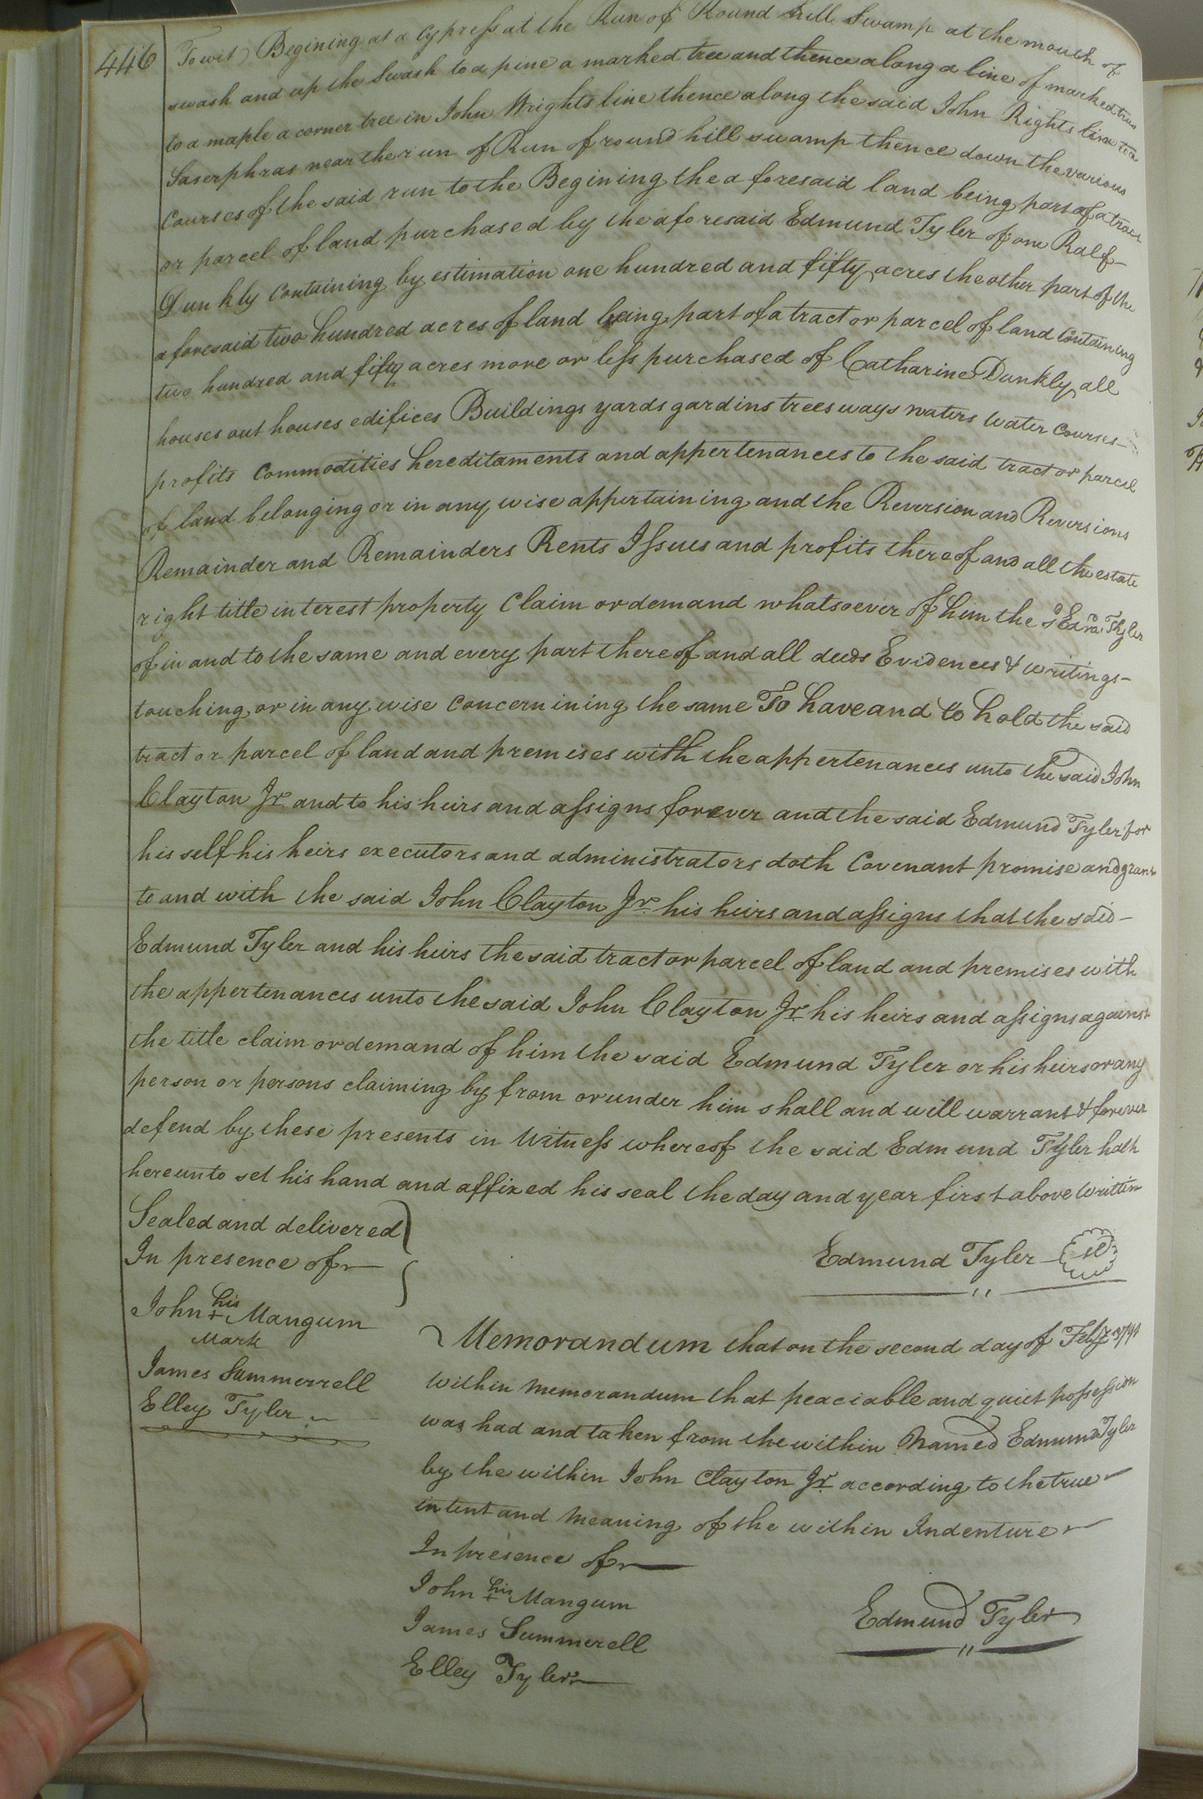 446
Towit) Begining at a Cypress at the Run of Round hill Swamp at the mouth of
swash and up the Swash to a pine a marked tree and thence along a line of marked trees
to a maple a corner tree in John Wrights line thence along the said John Rights line to a
Saserphras near the run of Run of round hill swamp thence down the various
Courses of the said run to the Begining the aforesaid land being part of a tract
or parcel of land purchased by the aforesaid Edmund Tyler of one Ralf
Dunkly Containing by estimation one hundred and fifty acres the other part of the
aforesaid two hundred acres of land being part of a tract or parcel of land Containing
two hundred and fifty acres more or less purchased of Catharine Dunkly all
houses out houses edifices Buildings yards gardins trees ways waters water Courses
profits Commodities hereditaments and appertenances to the said tract or parcel
of land belonging or in any wise appertaining and the Reversion and Reversions
Remainder and Remainders Rents Issues and profits thereof and all the estate
right title interest property Claim or demand whatsoever of him the sd Edmd Tyler
of in and to the same and every part thereof and all deeds Evidences & writings-
touching or in any wise Concernining the same To have and to hold the said
tract or parcel of land and premises with the appertenances unto the said John
Clayton Jr and to his heirs and assigns forever and the said Edmund Tyler for
his self his heirs executors and administrators doth Covenant promise and grant
to and with the said John Clayton Jr his heirs and assigns that the said-
Edmund Tyler and his heirs the said tract or parcel of land and premises with
the appertenances unto the said John Clayton Jr his heirs and assigns against
the title claim or demand of him the said Edmund Tyler or his heirs or any
person or persons claiming by from or under him shall and will warrant & forever
defend by these presents in Witness whereof the said Edmund Tyler hath
hereunto set his hand and affixed his seal the day and year first above written
Sealed and delivered
In presence of
Edmund Tyler
John his + Mangum
Mark
James Summerrell
Elley Tyler
Memorandum that on the second day of Feby
within memorandum that peaciable and quiet possession
was had and taken from the within Named Edmund Tyler
by the within John Clayton Jr according to the true
intent and meaning of the within Indenture
In presence of
John his + Mangum
James Summerell
Elley Tyler
Edmund Tyler